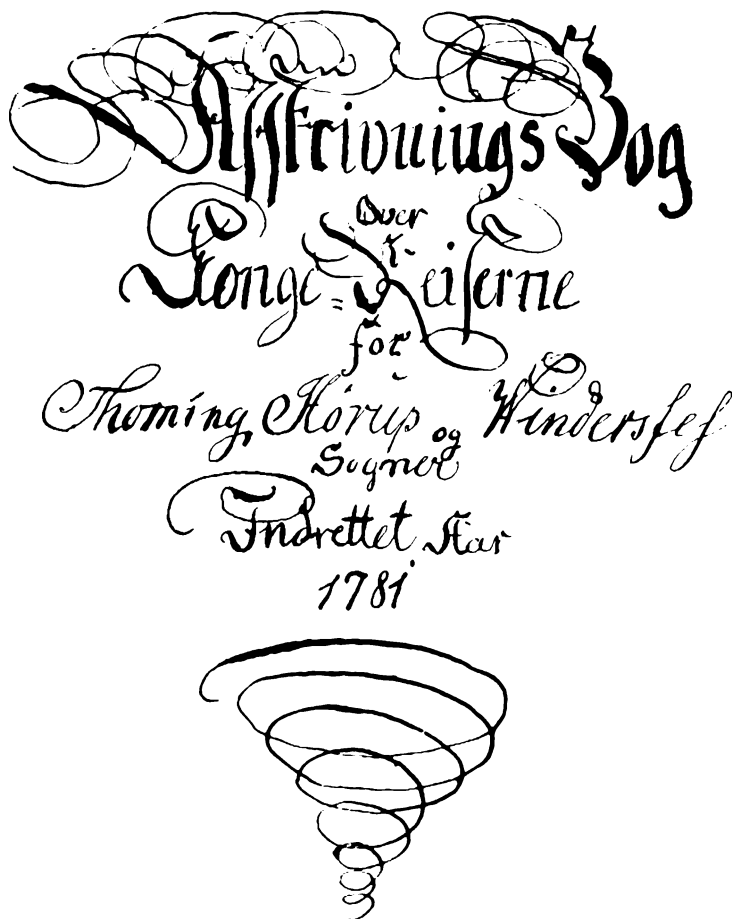 Afskrivnings Bog
Over
Konge=Reiserne
for
Thorning, Kørup og Winderslef
Sogner
Indrettet Aar
1781